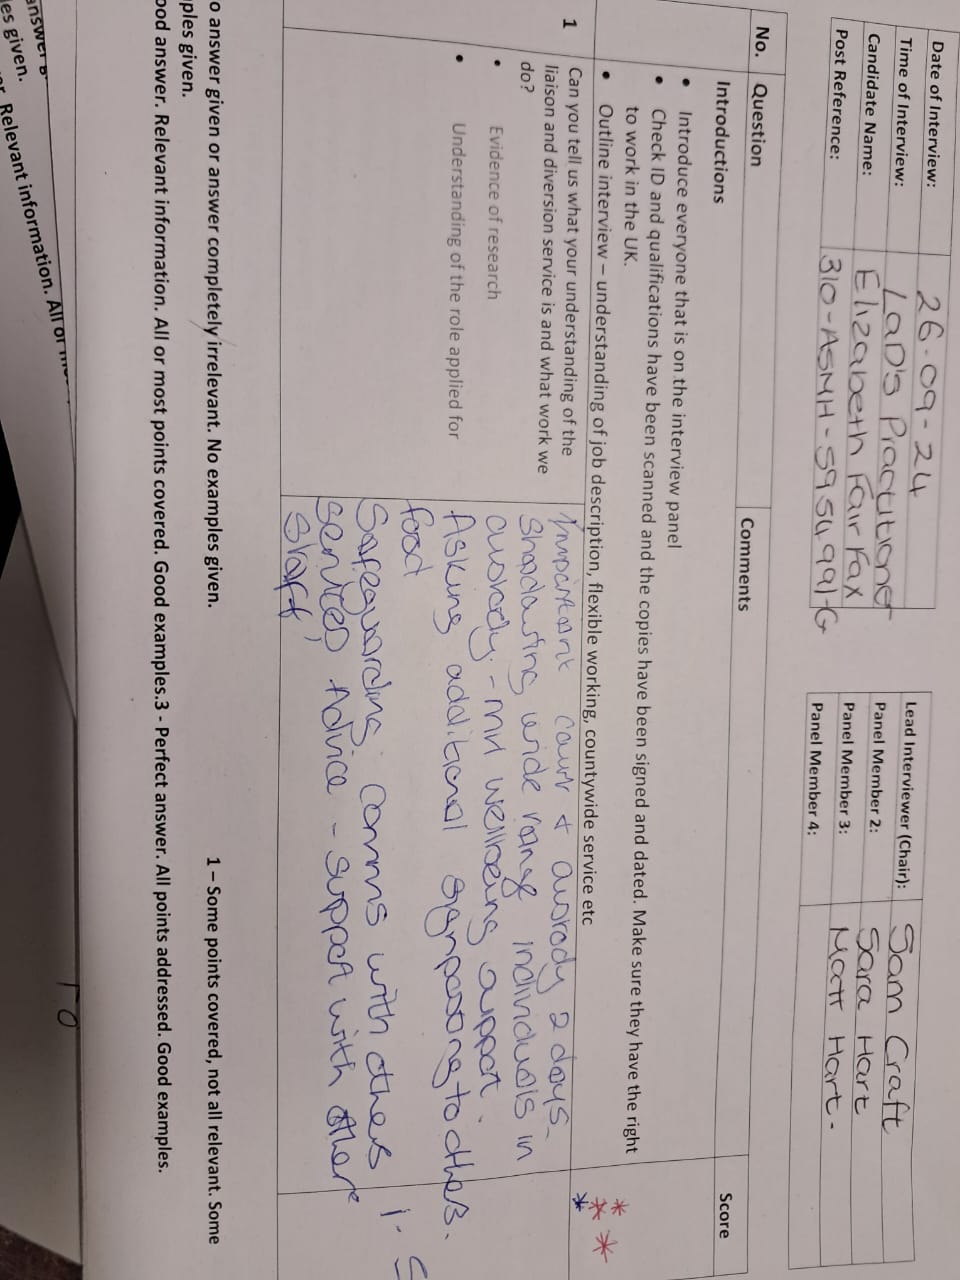 Date of Interview: 26-09-24
Time of Interview: LaD's Practitioner
Candidate Name: Elizabeth Fairfax
Post Reference: 310-ASMH-5954991-G
Lead Interviewer (Chair): Sam Craft
Panel Member 2: Sara Hart
Panel Member 3: Matt Hart-
Panel Member 4:
No. Question Comments Score
Introductions
• Introduce everyone that is on the interview panel
• Check ID and qualifications have been scanned and the copies have been signed and dated. Make sure they have the right
to work in the UK.
• Outline interview – understanding of job description, flexible working, countywide service etc
1 Can you tell us what your understanding of the
liaison and diversion service is and what work we
do?
• Evidence of research
• Understanding of the role applied for
Important court + custody 2 days-
Shadowing wide range individuals in
custody. - MH wellbeing support.
Asking additional signposting to others.
food
Safeguarding. Comms with others
services, Advice - support with other
Staff
1.5
o answer given or answer completely irrelevant. No examples given.
1 – Some points covered, not all relevant. Some
ples given.
ood answer. Relevant information. All or most points covered. Good examples.3 - Perfect answer. All points addressed. Good examples.
answer
es given.
Relevant information. All or